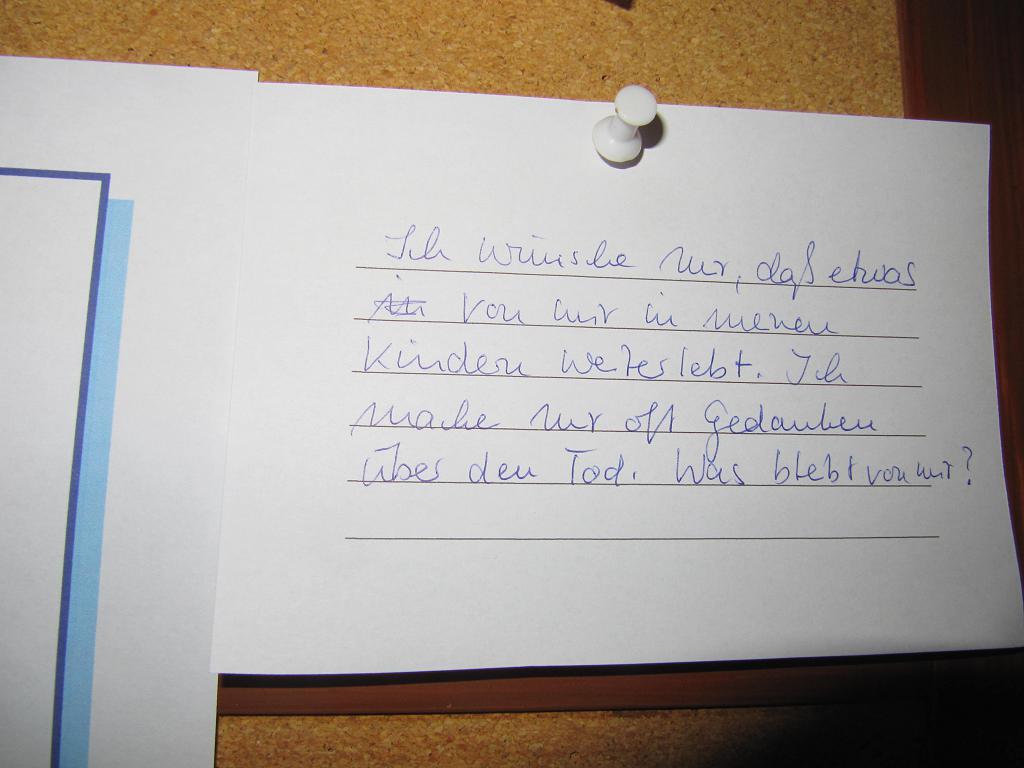 Ich wünsche mir, daß etwas
von mir in meinen
Kindern weiterlebt. Ich
mache mir oft Gedanken
über den Tod. Was bleibt von mir?